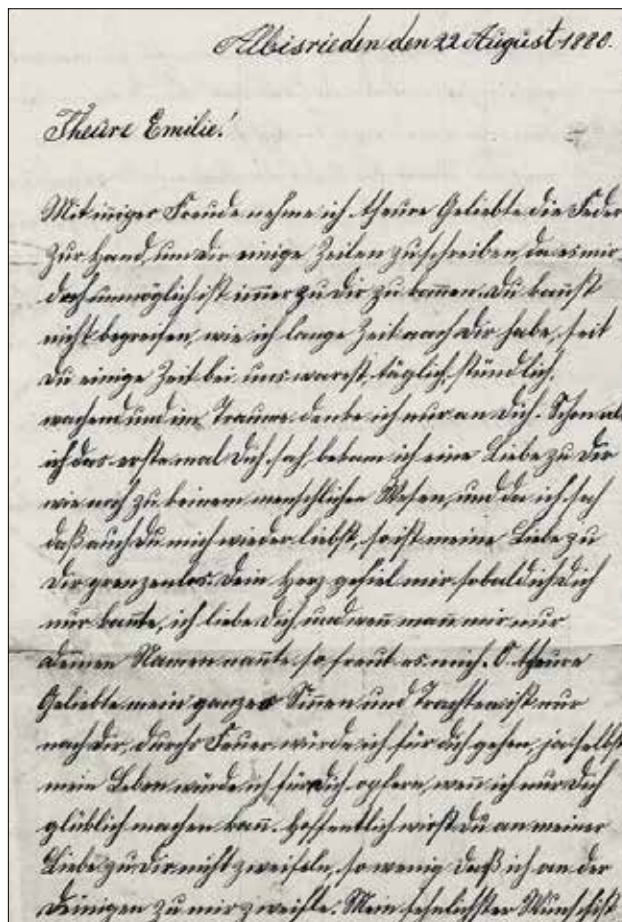 Albisrieden den 22 August 1880.
Theure Emilie!
Mit inniger Freude nehme ich theure Geliebte die Feder
zur Hand, um Dir einige Zeilen zu schreiben, da es mir
doch unmöglich ist immer zu Dir zu kommen. Du kannst
nicht begreifen, wie ich lange Zeit nach Dir habe, seit
Du einige Zeit bei uns warest, täglich, stündlich,
wachend und im Traume denke ich nur an Dich. Schon als
ich das erste mal Dich sah, bekam ich eine Liebe zu Dir
wie noch zu keinem menschlichen Wesen, und da ich sah
daß auch Du mich wieder liebst, so ist meine Liebe zu
Dir grenzenlos. Dein Herz gefiel mir sobald ich Dich
nur kannte, ich liebe Dich und wenn mann mir nur
Deinen Namen nannte so freut es mich. O theure
Geliebte mein ganzes Sinnen und Trachten ist nur
nach Dir, durchs Feuer würde ich für Dich gehen, ja selbst
mein Leben würde ich für Dich opfern, wenn ich nur Dich
glücklich machen kann. Hoffentlich wirst Du an meiner
Liebe zu Dir nicht zweifeln, so wenig daß ich an der
Deinigen zu mir zweifle. Mein sehnlichster Wunsch ist